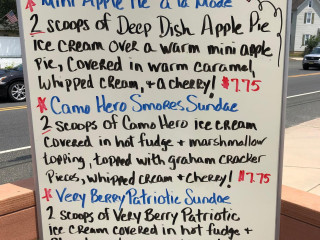 Mini Apple Pie a la Mode
2 scoops of Deep Dish Apple Pie
Ice cream over a warm mini apple
Pie, covered in warm caramel,
whipped cream, + a cherry! $7.75
* Camo Hero Smores Sundae
2 scoops of Camo Hero ice cream
covered in hot fudge + marshmallow
topping, topped with graham cracker
Pieces, whipped cream + Cherry! $7.75
* Very Berry Patriotic Sundae
2 scoops of Very Berry Patriotic
Ice cream covered in hot fudge +